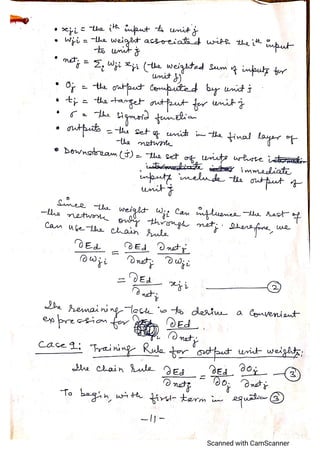 • xji = the ith input to unit j
• wji = the weight associated with the ith input
to unit j
• netj = Σi wji xji (the weighted sum of inputs for
unit j)
• Oj = the output computed by unit j
• tj = the target output for unit j
• σ = the sigmoid function
• outputs = the set of units in the final layer of
the network
• Downstream (j) = the set of units whose
immediate
inputs include the output of
unit j
Since the weight wji can influence the rest of
the network only through netj. Therefore, we
can use the chain rule
∂Ed/∂wji = ∂Ed/∂netj ∂netj/∂wji
= ∂Ed/∂netj xji — ②
The remaining task is to derive a convenient
expression for ∂Ed/∂netj
Case 1: Training Rule for output unit weights:
The chain rule ∂Ed/∂netj = ∂Ed/∂Oj ∂Oj/∂netj — ③
To begin, with first term in equation ③
-11-
Scanned with CamScanner